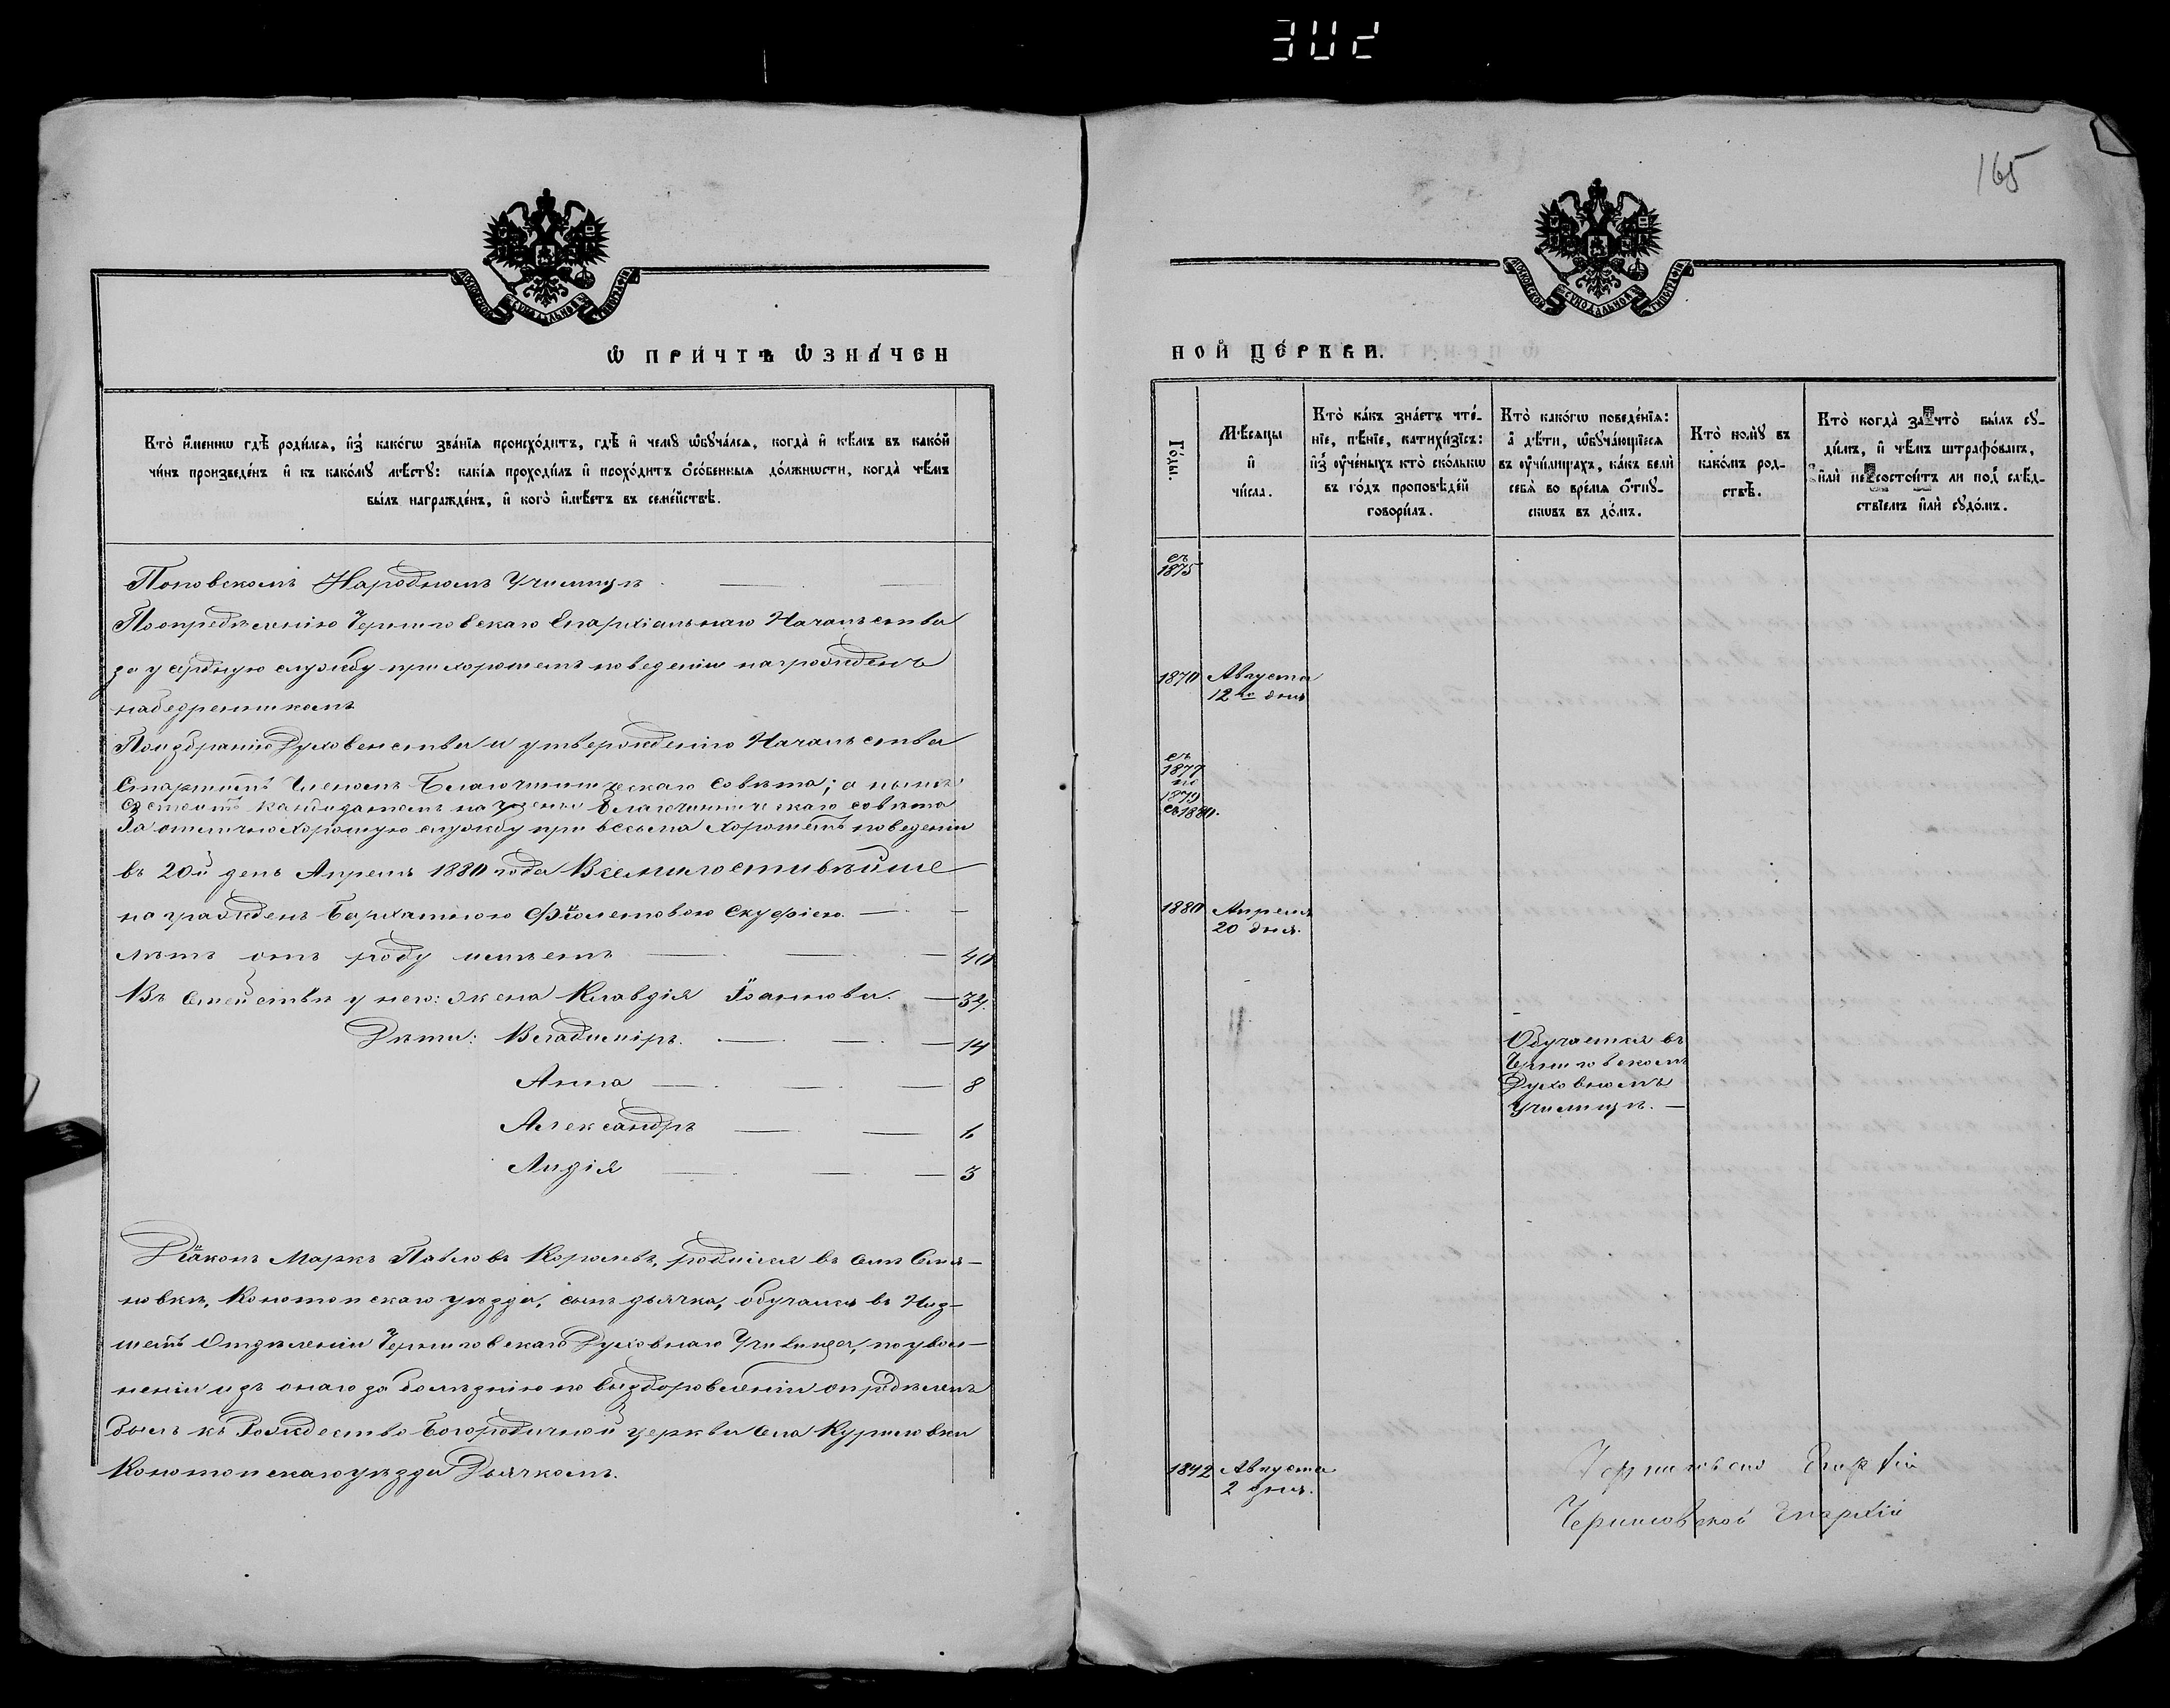 302
165
МОСКОВСКОЙ СѴНОДАЛЬНОЙ ТИПОГРАФІИ
МОСКОВСКОЙ СѴНОДАЛЬНОЙ ТИПОГРАФІИ
Ѡ ПРИ́ЧТѢ ѠЗНА́ЧЕН
НОЙ ЦЕ́РКВИ.
Кто̀ и҆́меннѡ гдѣ̀ роди́лсѧ, и҆з̾ како́гѡ зва́нїѧ происхо́дитъ, гдѣ̀ и҆ чемꙋ̀ ѡ҆бꙋча́лсѧ, когда̀ и҆ кѣ́мъ въ како́й
чи́нъ произведе́нъ и҆ къ како́мꙋ мѣ́стꙋ: какі́ѧ проходи́лъ и҆ прохо́дитъ ѻ҆со́бенныѧ до́лжнѡсти, когда̀ чѣ́мъ
бы́лъ награжде́нъ, и҆ кого̀ и҆мѣ́етъ въ семе́йствѣ.
Поповскомъ Народномъ Училищѣ
По опредѣленію Черниговскаго Епархіальнаго Начальства
за усердную службу при хорошемъ поведеніи награжденъ
набедренникомъ
По избранію Духовенства и утвержденію Начальства
Старшимъ Членомъ Благочинническаго совѣта; а нынѣ
состоитъ кандидатомъ на члены благочинническаго совѣта
За отлично хорошую службу при весьма хорошемъ поведеніи
въ 20й день Апрѣля 1880 года Всемилостивѣйше
награжденъ бархатною фіолетовою скуфіею.
лѣтъ отъ роду имѣетъ 40
Въ семействѣ у него: жена Клавдія Іоаннова. 34.
Дѣти: Владиміръ. 14
Анна 8
Александръ 6
Лидія 3
Діаконъ Маркъ Павловъ Королевъ, родился въ селѣ Семя-
новкѣ, Конотопскаго уѣзда, сынъ дьячка, обучался въ Низ-
шемъ Отдѣленіи Черниговскаго Духовнаго Училища, по уволь-
неніи изъ онаго за болѣзнію по выздоровленіи опредѣленъ
былъ къ Рождество Богородичной церкви села Куриловки
Конотопскаго уѣзда Дьячкомъ.
Го́ды.
Мѣ́сѧцы
и҆
чи́сла.
Кто̀ ка́къ зна́етъ чте́-
нїе, пѣ́нїе, катихи́зїсъ:
и҆з̾ ᲂу҆че́ныхъ кто̀ ско́лькѡ
въ го́дъ проповѣ́дей
говори́лъ.
Кто̀ како́гѡ поведе́нїѧ:
а҆ дѣ́ти, ѡ҆бꙋча́ющїесѧ
въ ᲂу҆чи́лищахъ, ка́къ велѝ
себѧ̀ во вре́мѧ ѻ҆тпꙋ-
скѡвъ въ до́мъ.
Кто̀ комꙋ̀ въ
како́мъ род-
ствѣ̀.
Кто̀ когда̀ за что̀ бы́лъ сꙋ-
ди́мъ, и҆ чѣ́мъ штрафо́ванъ,
и҆лѝ не состои́тъ ли под̾ слѣ́д-
ствїемъ и҆лѝ сꙋдо́мъ.
съ
1875
1870 Августа
12го дня
съ
1877
по
1879
съ 1880.
1880 Апрѣля
20 дня.
Обучается въ
Черниговскомъ
Духовномъ
Училищѣ. —
1842 Августа
2 дня.
Черниговской Епархіи